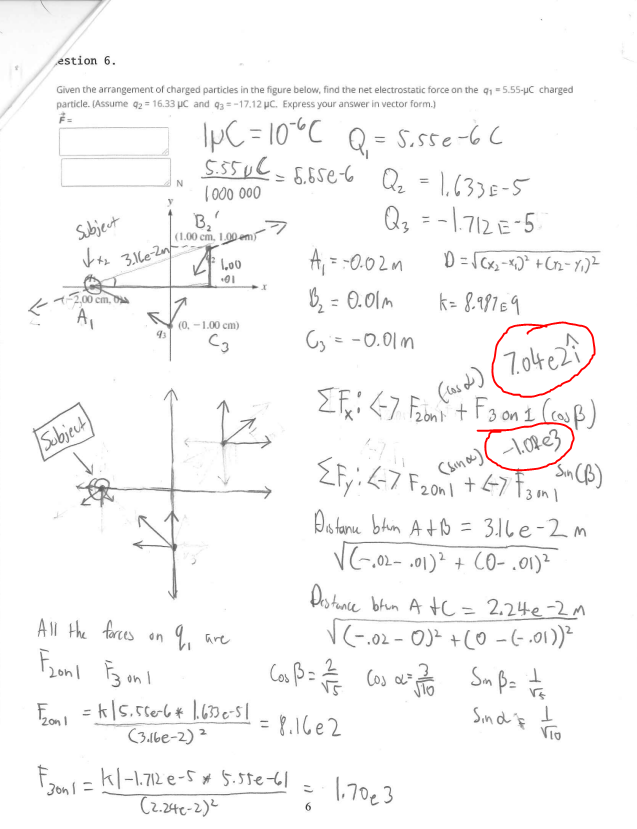 estion 6.
Given the arrangement of charged particles in the figure below, find the net electrostatic force on the q₁ = 5.55-μC charged
particle. (Assume q₂ = 16.33 μC and q₃ = −17.12 μC. Express your answer in vector form.)
F⃗ =
N
1μC = 10⁻⁶C Q₁ = 5.55e-6 C
5.55μC / 1000 000 = 5.55e-6
Q₂ = 1.633E-5
Q₃ = -1.712E-5
y
Subject
B₂
(1.00 cm, 1.00 cm)
3.16e-2m
1.00
.01
x
(−2.00 cm, 0)
A₁
q₃
(0, −1.00 cm)
C₃
A₁ = -0.02m D = √(x₂-x₁)² + (y₂-y₁)²
B₂ = 0.01m K = 8.987E9
C₃ = -0.01m
7.04e2 î
ΣFx: <-7 F2on1 (cos α) + F3 on 1 (cos β)
-1.02e3
ΣFy: <-7 F2on1 (sin α) + <-7 F3 on 1 Sin(β)
Subject
Distance btwn A+B = 3.16e-2 m
√(-.02- .01)² + (0- .01)²
Distance btwn A +C = 2.24e-2m
√(-.02 - 0)² + (0 - (-.01))²
All the forces on q₁ are
F2on1 F3 on 1
Cos β = 2/√5 Cos α = 3/√10 Sin β = 1/√5
Sin α = 1/√10
F2on1 = k|5.55e-6 * 1.633e-5| / (3.16e-2)² = 8.16e2
F3on1 = k|-1.712e-5 * 5.55e-6| / (2.24e-2)² = 1.70e3
6